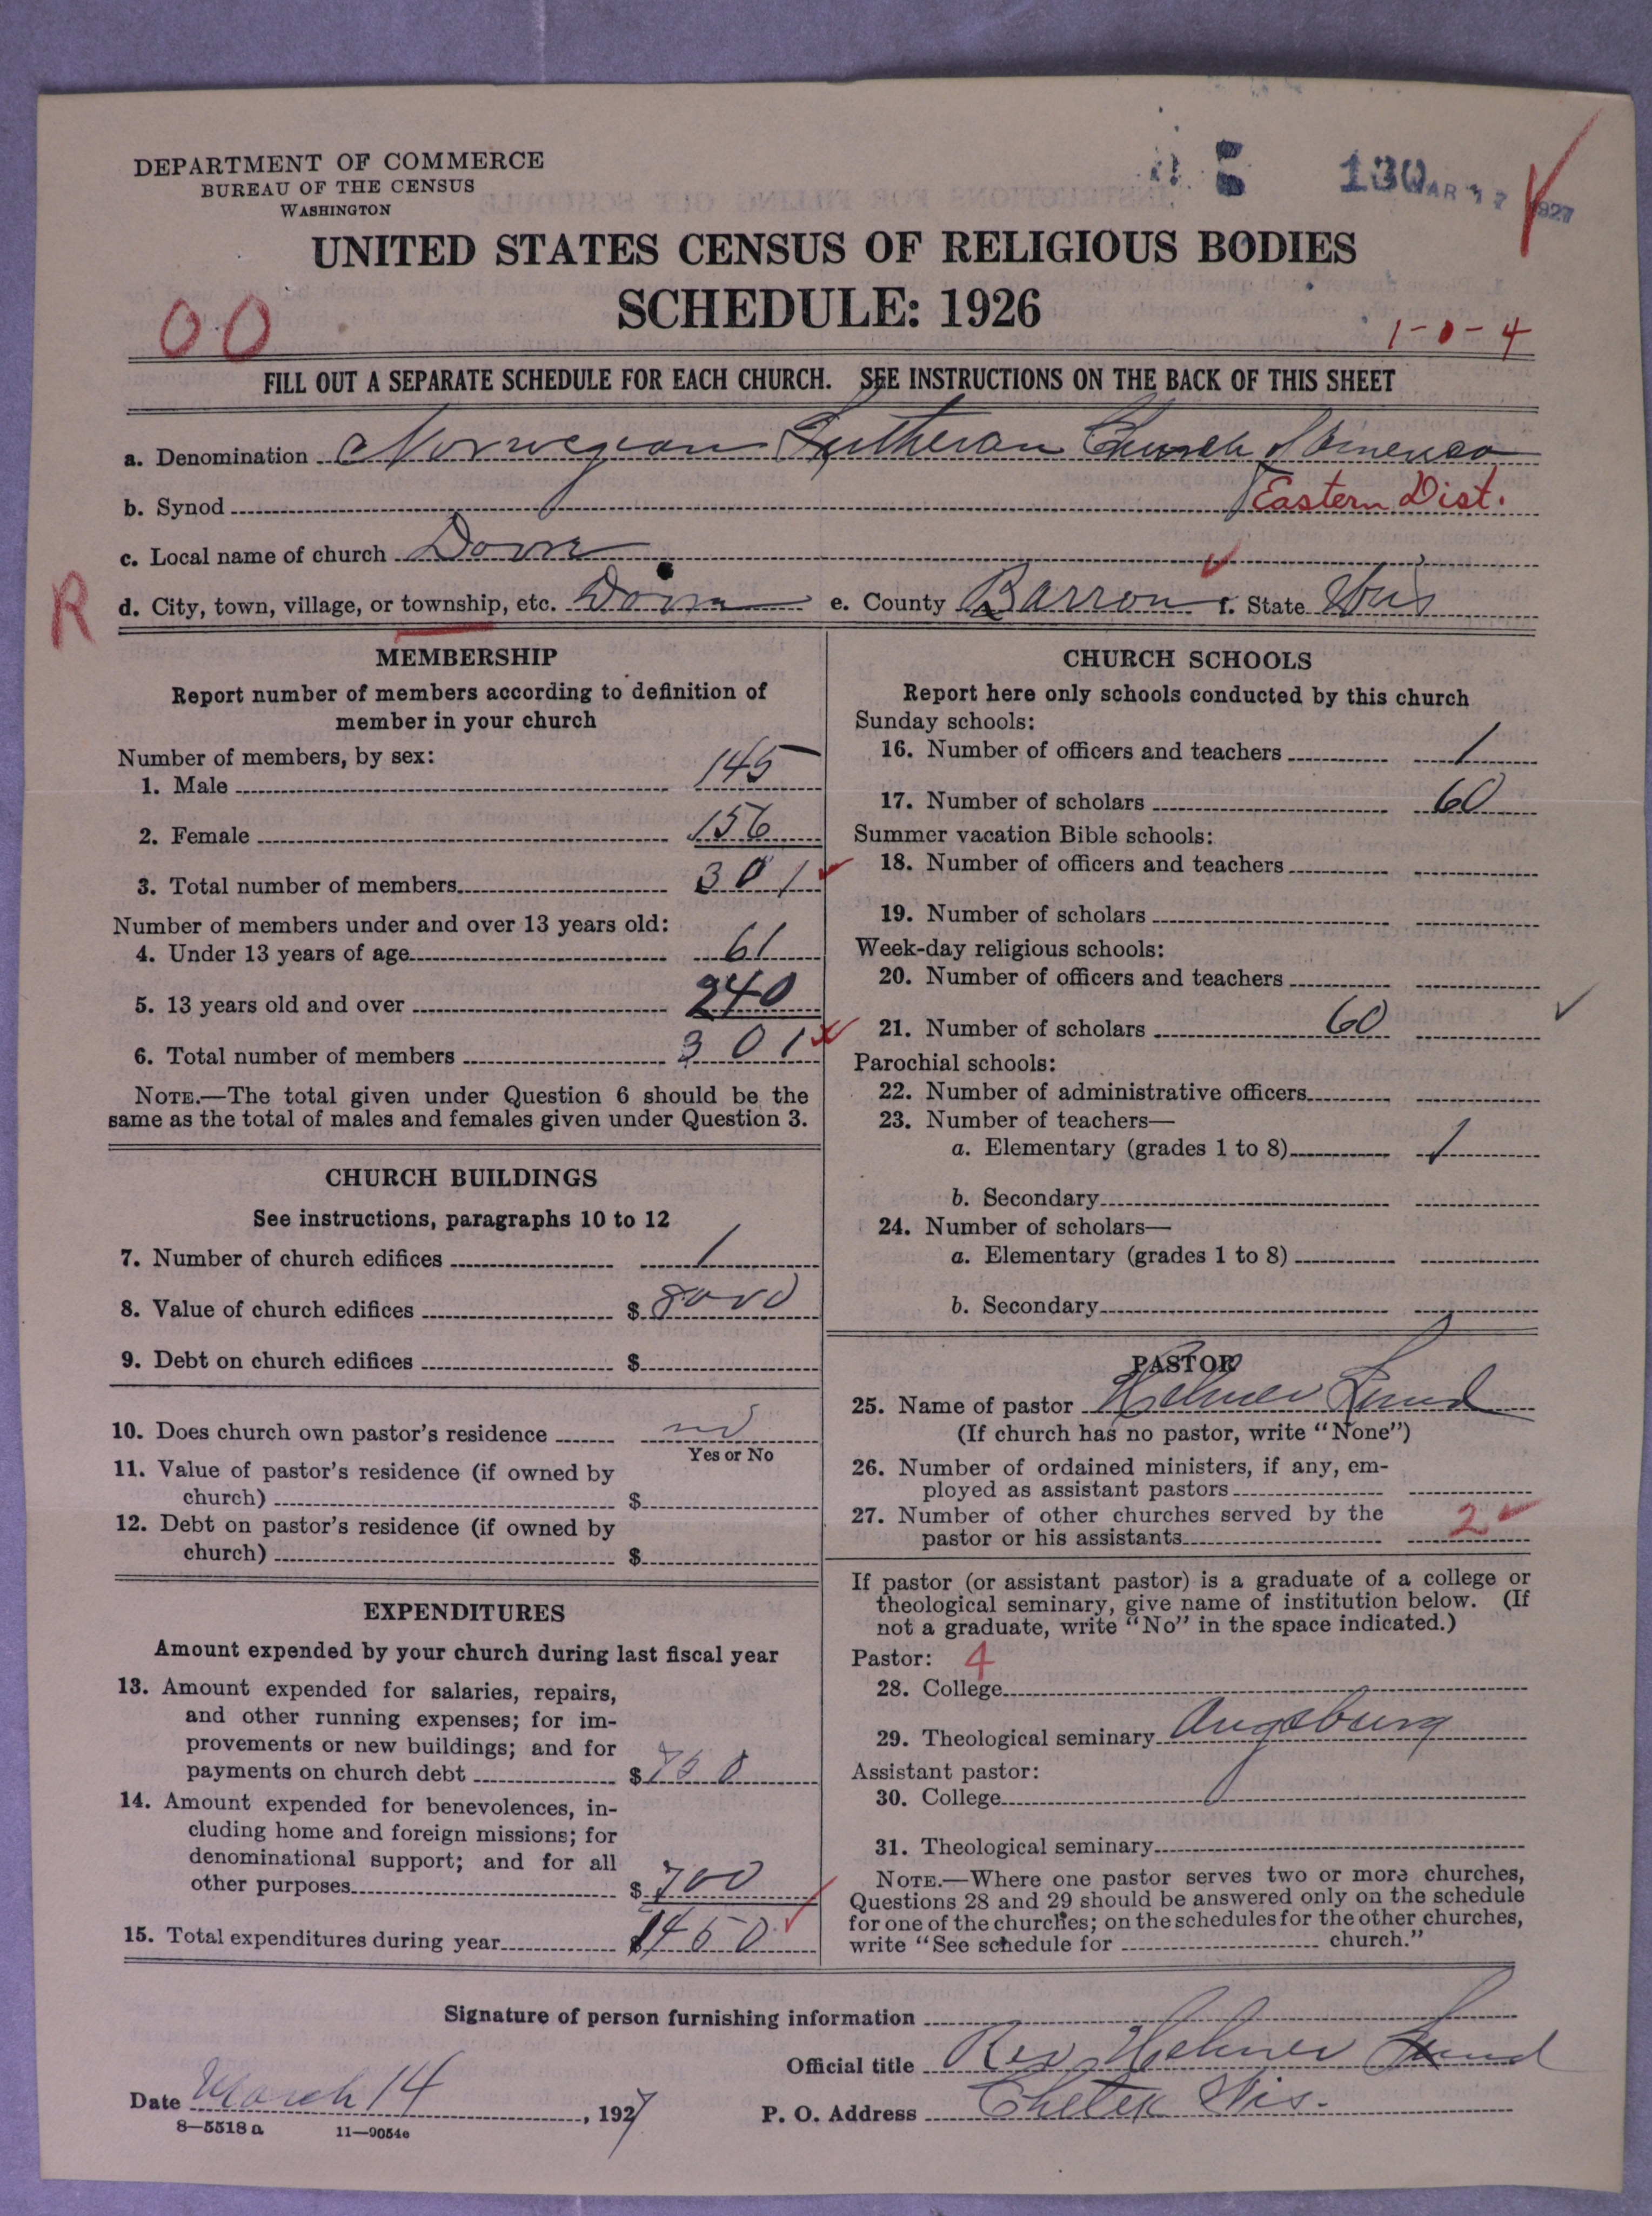 DEPARTMENT OF COMMERCE
BUREAU OF THE CENSUS
WASHINGTON
130 MAR 17 1927
UNITED STATES CENSUS OF RELIGIOUS BODIES
SCHEDULE: 1926
00
1-0-4
FILL OUT A SEPARATE SCHEDULE FOR EACH CHURCH. SEE INSTRUCTIONS ON THE BACK OF THIS SHEET
a. Denomination Norwegian Lutheran Church of America
b. Synod Eastern Dist.
c. Local name of church Dovre
R d. City, town, village, or township, etc. e. County Barron f. State Wis
MEMBERSHIP
Report number of members according to definition of
member in your church
Number of members, by sex:
1. Male 145
2. Female 156
3. Total number of members 301
Number of members under and over 13 years old:
4. Under 13 years of age 61
5. 13 years old and over 240
6. Total number of members 301
NOTE.—The total given under Question 6 should be the
same as the total of males and females given under Question 3.
CHURCH BUILDINGS
See instructions, paragraphs 10 to 12
7. Number of church edifices 1
8. Value of church edifices $ 8000
9. Debt on church edifices $
10. Does church own pastor's residence no
Yes or No
11. Value of pastor's residence (if owned by
church) $
12. Debt on pastor's residence (if owned by
church) $
EXPENDITURES
Amount expended by your church during last fiscal year
13. Amount expended for salaries, repairs,
and other running expenses; for im-
provements or new buildings; and for
payments on church debt $ 750
14. Amount expended for benevolences, in-
cluding home and foreign missions; for
denominational support; and for all
other purposes $ 700
15. Total expenditures during year $ 1450
CHURCH SCHOOLS
Report here only schools conducted by this church
Sunday schools:
16. Number of officers and teachers 1
17. Number of scholars 60
Summer vacation Bible schools:
18. Number of officers and teachers
19. Number of scholars
Week-day religious schools:
20. Number of officers and teachers
21. Number of scholars 60
Parochial schools:
22. Number of administrative officers
23. Number of teachers—
a. Elementary (grades 1 to 8) 1
b. Secondary
24. Number of scholars—
a. Elementary (grades 1 to 8)
b. Secondary
PASTOR
25. Name of pastor Helmer Lund
(If church has no pastor, write "None")
26. Number of ordained ministers, if any, em-
ployed as assistant pastors
27. Number of other churches served by the
pastor or his assistants 2
If pastor (or assistant pastor) is a graduate of a college or
theological seminary, give name of institution below. (If
not a graduate, write "No" in the space indicated.)
Pastor: 4
28. College
29. Theological seminary Augsburg
Assistant pastor:
30. College
31. Theological seminary
NOTE.—Where one pastor serves two or more churches,
Questions 28 and 29 should be answered only on the schedule
for one of the churches; on the schedules for the other churches,
write "See schedule for church."
Signature of person furnishing information
Official title Rev Helmer Lund
Date March 14, 1927 P. O. Address Chetek Wis.
8—5518 a 11—9054e